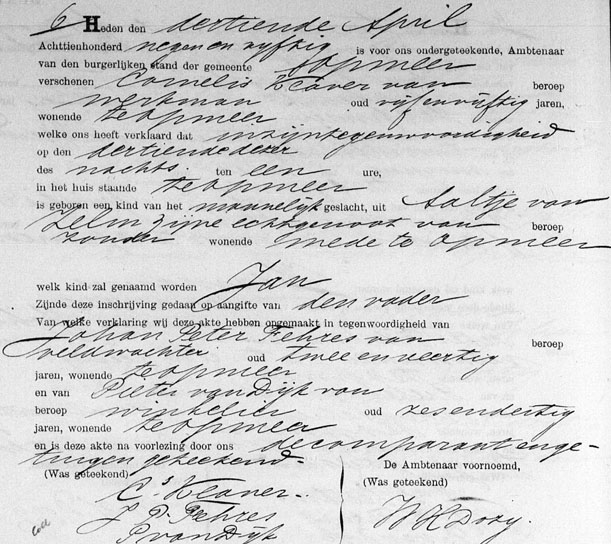 6 Heden den dertiende April
Achttienhonderd negen en vyftig is voor ons ondergeteekende, Ambtenaar
van den burgerlijken stand der gemeente Opmeer
verschenen Cornelis Klaver van beroep
werkman oud vijfenvijftig jaren,
wonende te Opmeer
welke ons heeft verklaard dat in zijn tegenwoordigheid
op den dertiende dezer
des nachts ten een ure,
in het huis staande te Opmeer
is geboren een kind van het mannelijk geslacht, uit Aaltje van
Zelm zijne echtgenoot van beroep
zonder wonende mede te Opmeer
welk kind zal genaamd worden Jan
Zijnde deze inschrijving gedaan op aangifte van den vader
Van welke verklaring wij deze akte hebben opgemaakt in tegenwoordigheid van
Johan Peter Fehres van beroep
veldwachter oud twee en veertig
jaren, wonende te Opmeer
en van Pieter van Dijk van
beroep winkelier oud zes en dertig
jaren, wonende te Opmeer
en is deze akte na voorlezing door ons de comparant en ge-
tuigen geteekend.
(Was geteekend)
Cs Klaver.
J P Fehres
P van Dijk
De Ambtenaar voornoemd,
(Was geteekend)
W K Dozy.